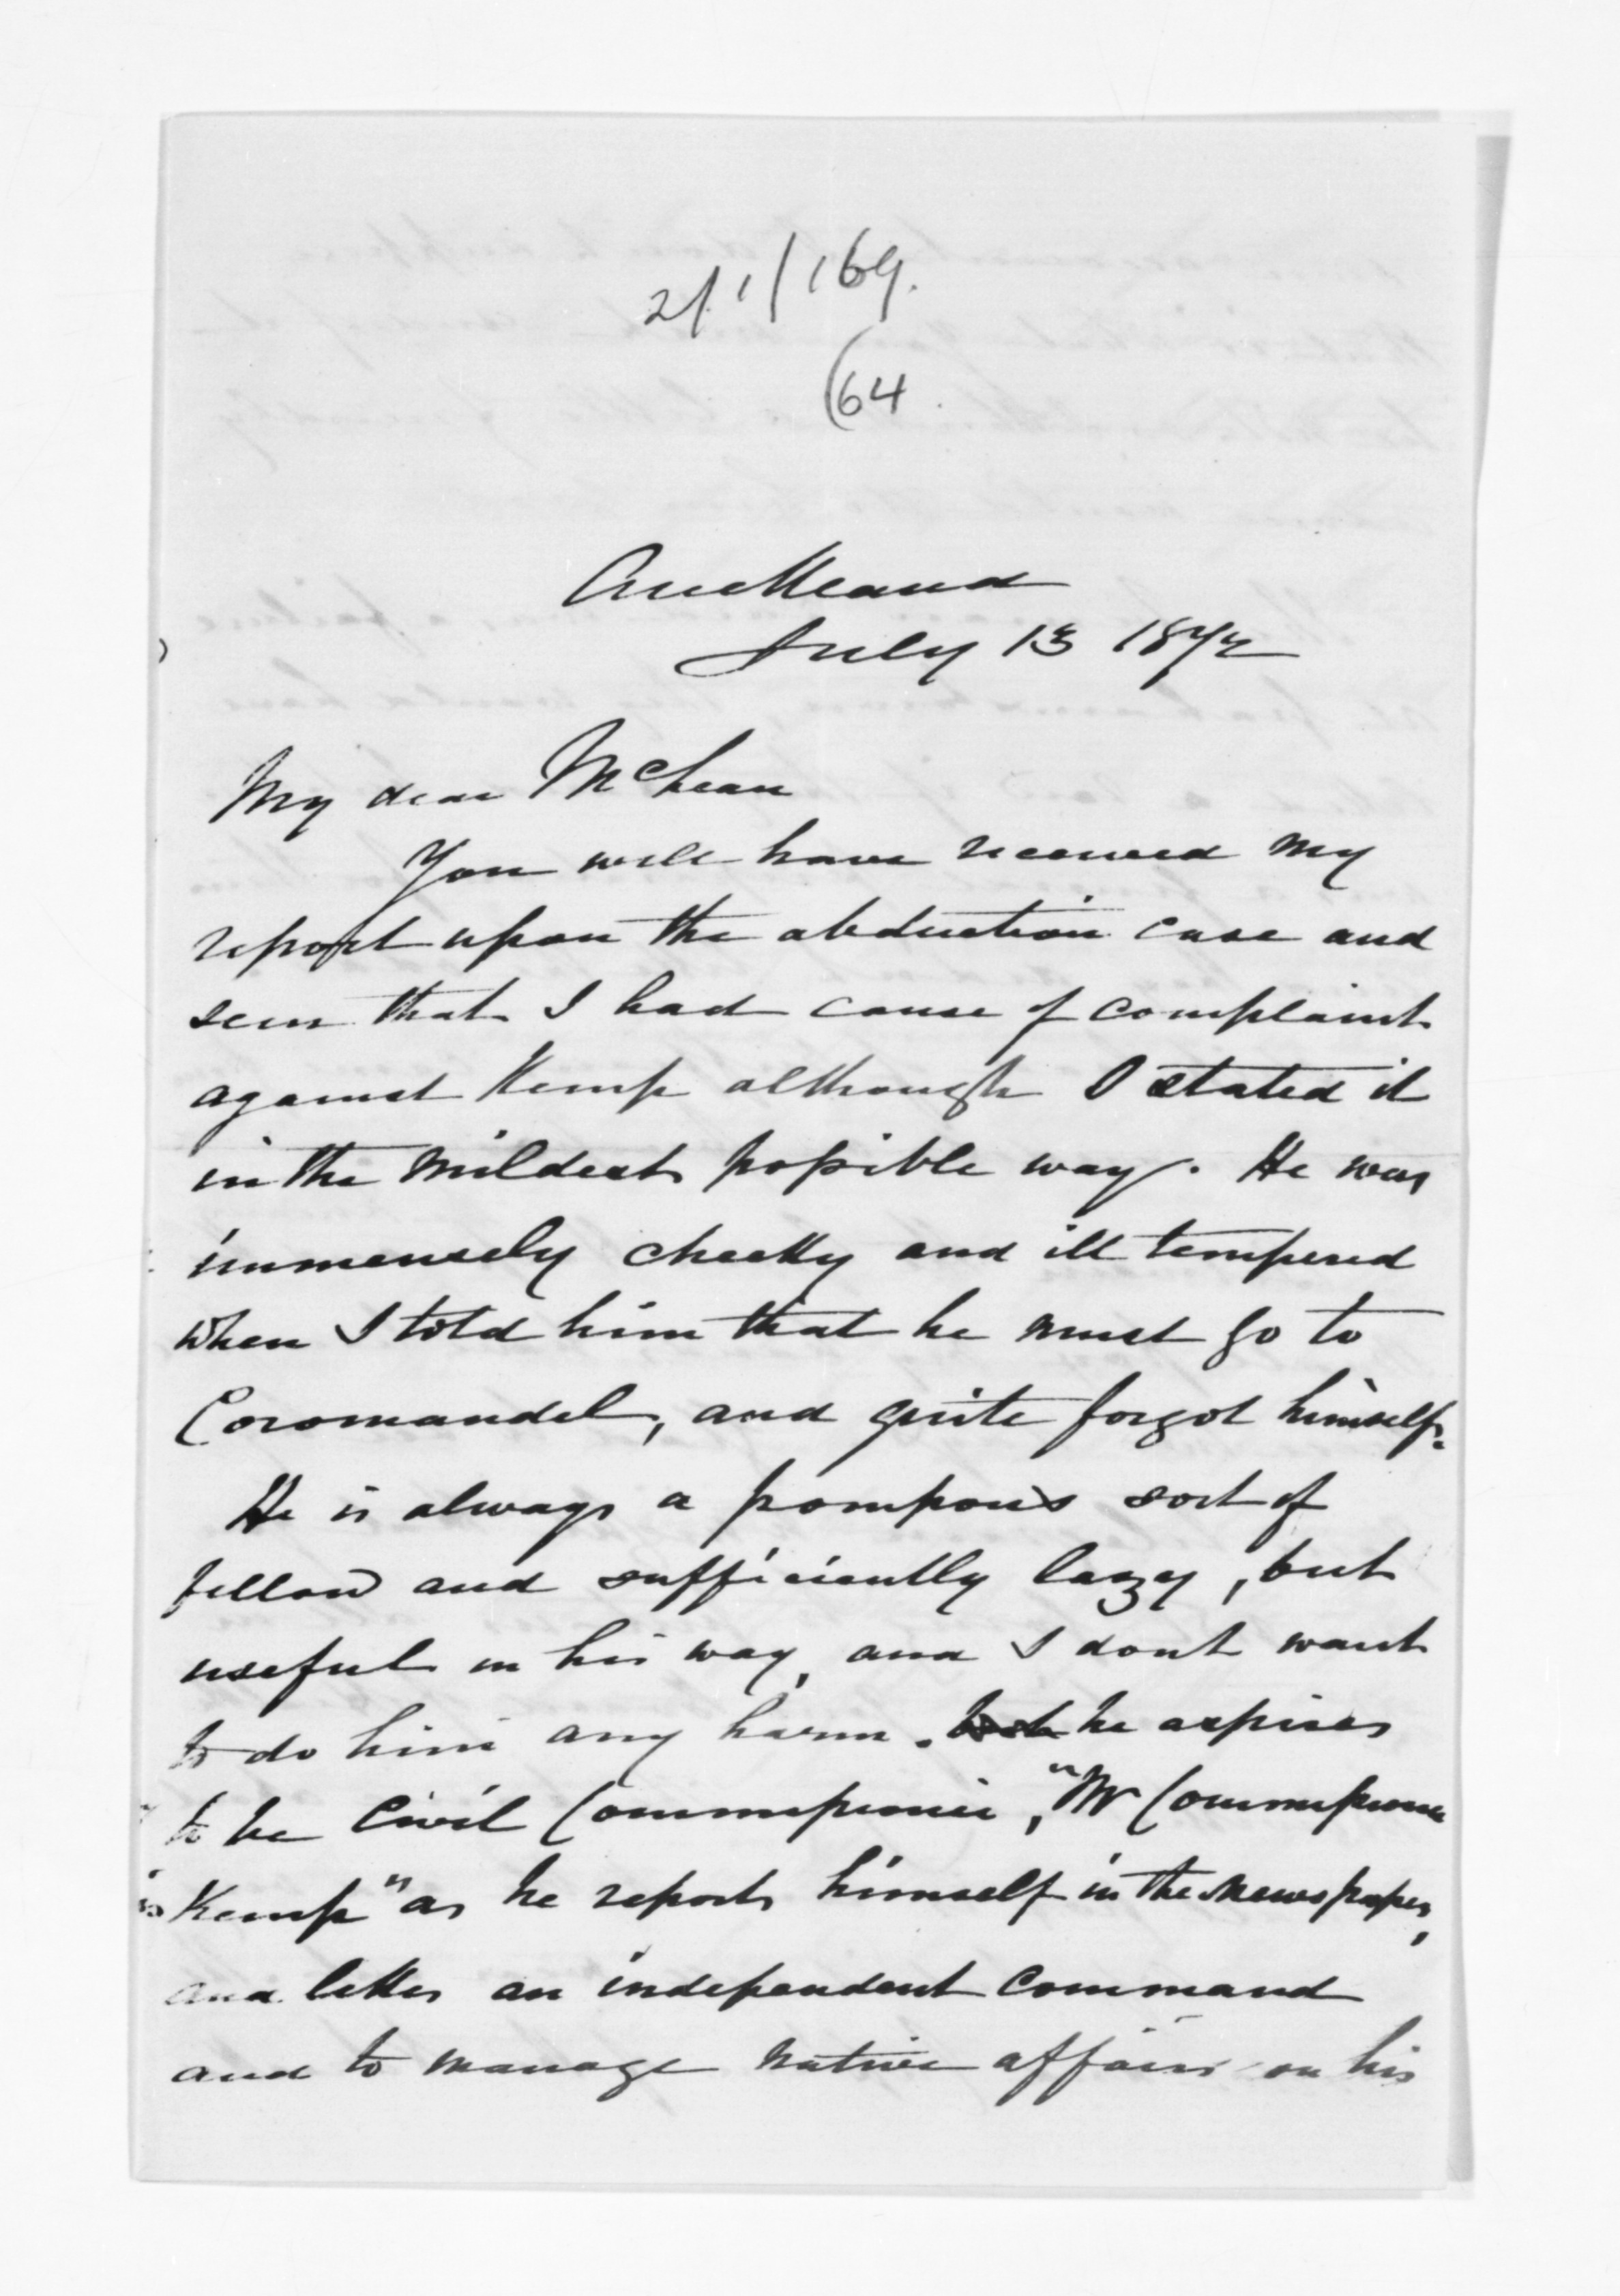 2/1/169.
(64.
Auckland
July 13 1872
My dear McLean
You will have received my
report upon the abduction case and
seen that I had cause of complaint
against Kemp although I stated it
in the mildest possible way. He was
immensely cheeky and ill tempered
when I told him that he must go to
Coromandel, and quite forgot himself.
He is always a pompous sort of
fellow and sufficiently lazy, but
useful in his way, and I dont want
to do him any harm. he aspires
to be Civil Commissioner, "Mr Commissioner
Kemp" as he reports himself in the newspapers,
and an independent command
and to manage native affairs on his